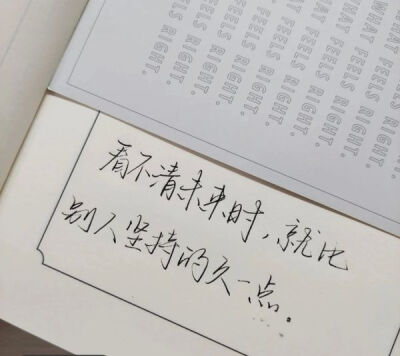 WHAT FEELS RIGHT.
WHAT FEELS RIGHT.
WHAT FEELS RIGHT.
FEELS RIGHT.
FEELS RIGHT.
FEELS RIGHT.
RIGHT.
RIGHT.
看不清未来时,就比
别人坚持的久一点.